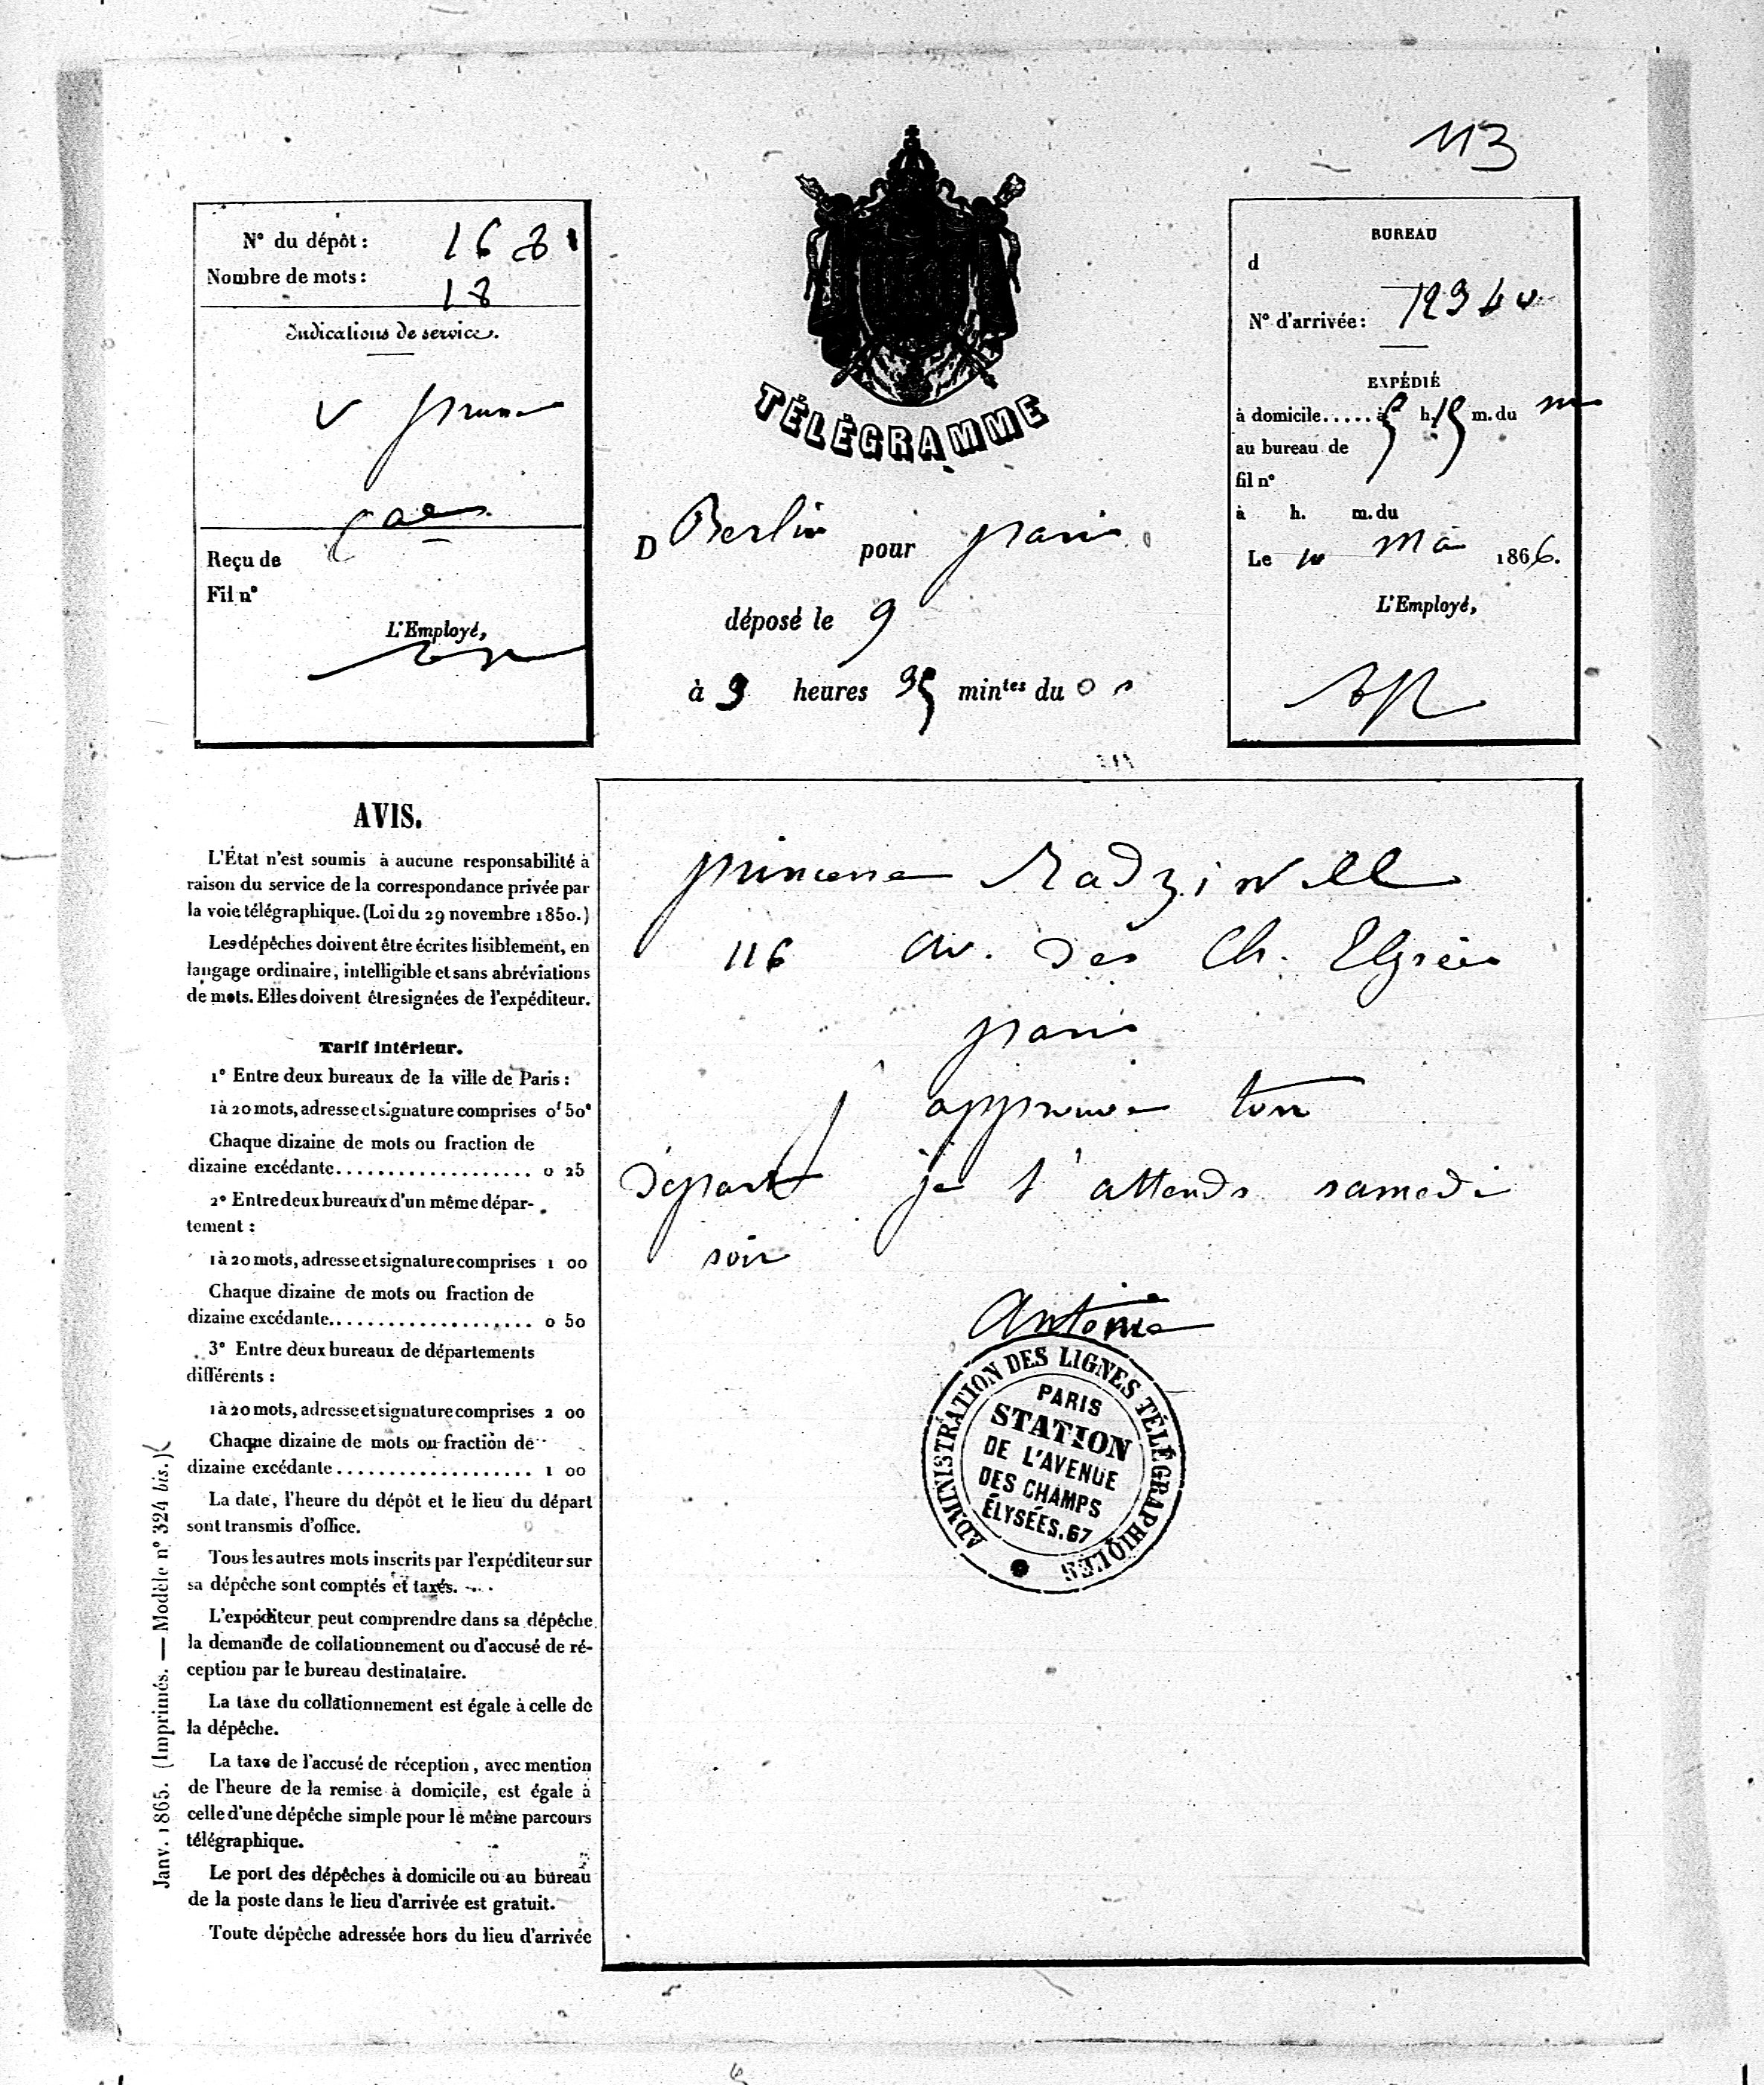 113
N° du dépôt: 1681
Nombre de mots: 18
Indications de service.
Reçu de
Fil n°
L'Employé,
TÉLÉGRAMME
D Berlin pour paris
déposé le 9
à 9 heures 35 min^tes du
BUREAU
d
N° d'arrivée:
EXPÉDIÉ
à domicile..... à 5 h. 15 m. du m
au bureau de
fil n°
à h. m. du
Le 10 Mai 1866.
L'Employé,
AVIS.
L'État n'est soumis à aucune responsabilité à
raison du service de la correspondance privée par
la voie télégraphique. (Loi du 29 novembre 1850.)
Les dépêches doivent être écrites lisiblement, en
langage ordinaire, intelligible et sans abréviations
de mots. Elles doivent être signées de l'expéditeur.
Tarif intérieur.
1° Entre deux bureaux de la ville de Paris:
1 à 20 mots, adresse et signature comprises 0f 50c
Chaque dizaine de mots ou fraction de
dizaine excédante................... 0 25
2° Entre deux bureaux d'un même dépar-
tement:
1 à 20 mots, adresse et signature comprises 1 00
Chaque dizaine de mots ou fraction de
dizaine excédante................... 0 50
3° Entre deux bureaux de départements
différents:
1 à 20 mots, adresse et signature comprises 2 00
Chaque dizaine de mots ou fraction de
dizaine excédante................... 1 00
La date, l'heure du dépôt et le lieu du départ
sont transmis d'office.
Tous les autres mots inscrits par l'expéditeur sur
sa dépêche sont comptés et taxés.
L'expéditeur peut comprendre dans sa dépêche
la demande de collationnement ou d'accusé de ré-
ception par le bureau destinataire.
La taxe du collationnement est égale à celle de
la dépêche.
La taxe de l'accusé de réception, avec mention
de l'heure de la remise à domicile, est égale à
celle d'une dépêche simple pour le même parcours
télégraphique.
Le port des dépêches à domicile ou au bureau
de la poste dans le lieu d'arrivée est gratuit.
Toute dépêche adressée hors du lieu d'arrivée
Janv. 1865. (Imprimés. — Modèle n° 324 bis.)
princesse Radziwill
116 av. des Ch. Elysées
paris
j' approuve ton
départ je t' attends samedi
soir
Antoine
ADMINISTRATION DES LIGNES TÉLÉGRAPHIQUES
PARIS
STATION
DE L'AVENUE
DES CHAMPS
ÉLYSÉES.67